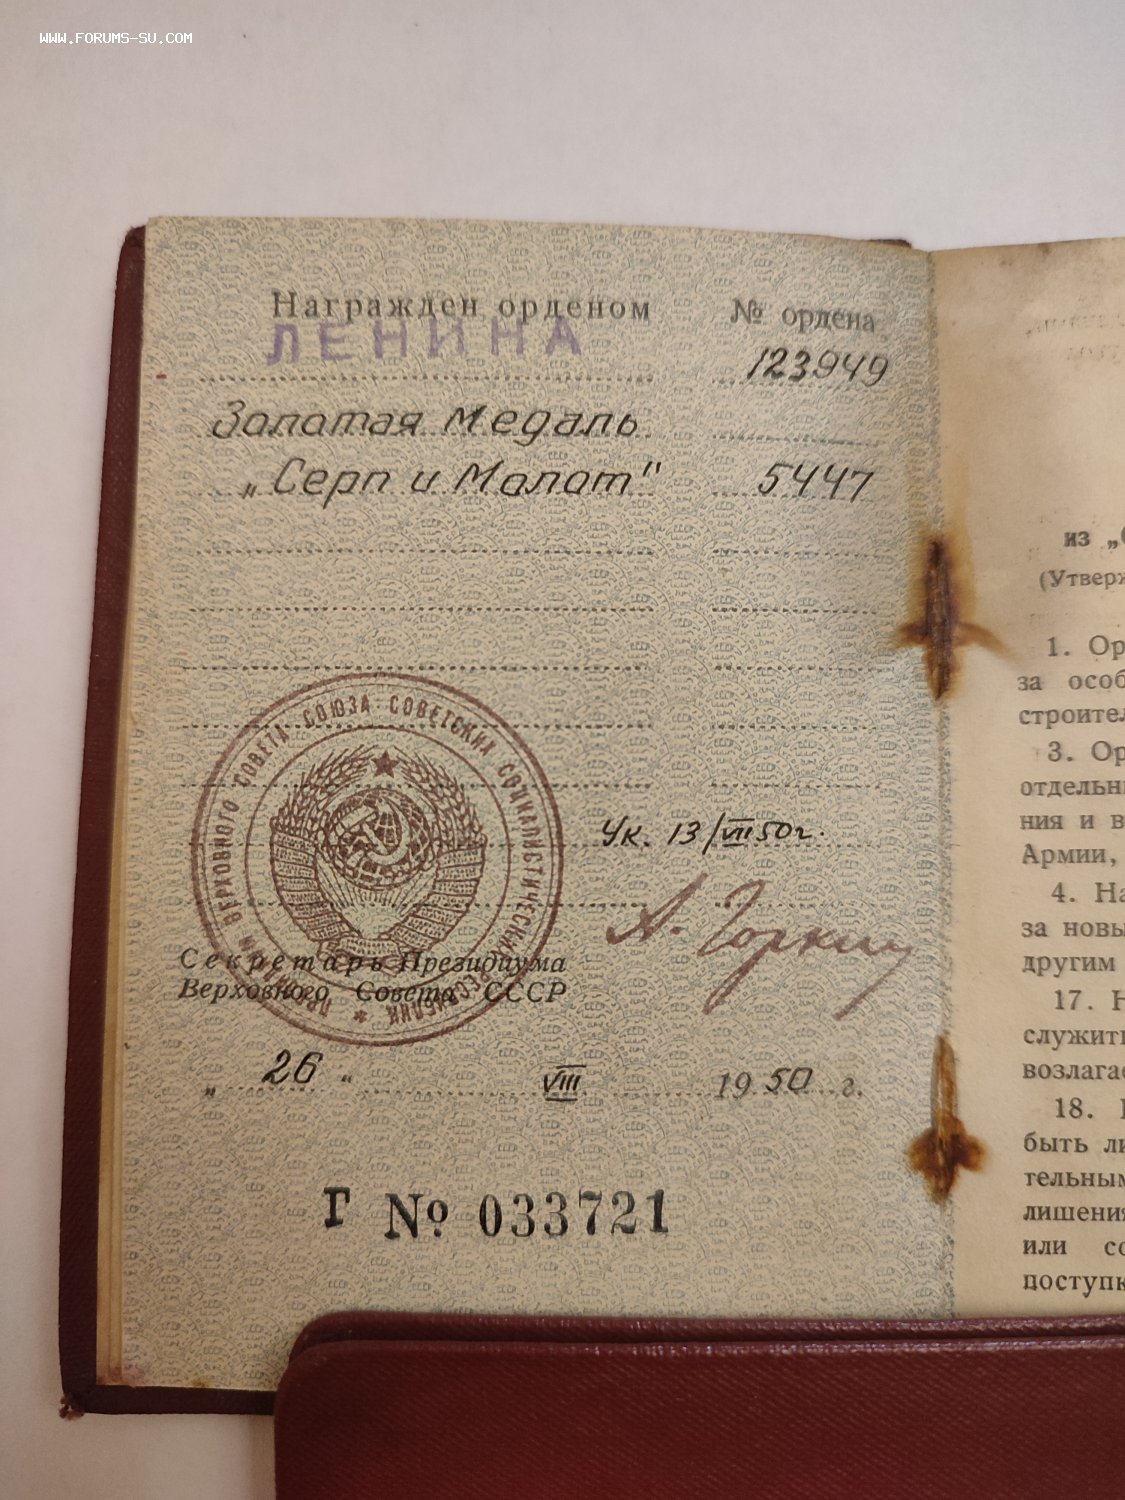 WWW.FORUMS-SU.COM
Награжден орденом № ордена
ЛЕНИНА 123949
Золотая Медаль
„Серп и Молот" 5447
ПРЕЗИДИУМ ВЕРХОВНОГО СОВЕТА СОЮЗА СОВЕТСКИХ СОЦИАЛИСТИЧЕСКИХ РЕСПУБЛИК *
Ук. 13/VII 50г.
А. Горкин
Секретарь Президиума
Верховного Совета СССР
„ 26 " VIII 1950 г.
Г № 033721
из „
(Утверж
1. Ор
за особ
строител
3. Ор
отдельн
ния и в
Армии,
4. На
за новы
другим
17. Н
служить
возлагае
18.
быть ли
тельным
лишения
или со
поступк